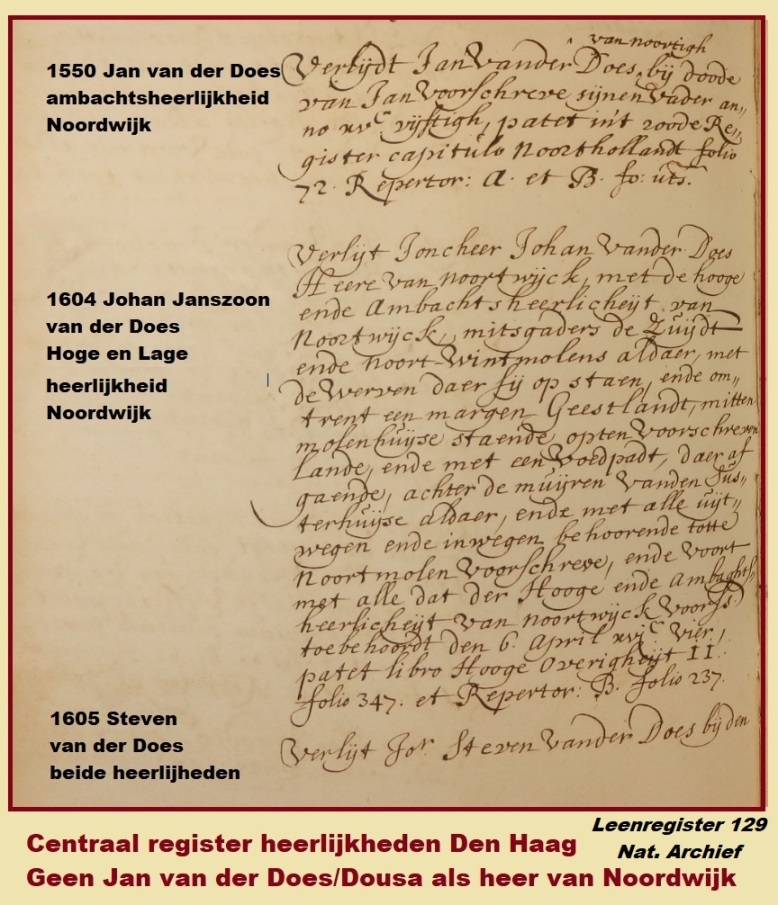 1550 Jan van der Does
ambachtsheerlijkheid
Noordwijk
van noortigh
Verlijdt Jan vander Does, bij doode
van Jan voorschreve sijnen vader an„
no xvc vijftigh, patet int roode Re„
gister capitulo Noorthollandt folio
72. Repertor: A. et B. fo: uts.
1604 Johan Janszoon
van der Does
Hoge en Lage
heerlijkheid
Noordwijk
Verlijt Joncheer Johan vander Does
Heere van Noortwijck, met de hooge
ende Ambachtsheerlicheijt van
Noortwijck, mitsgaders de Zuijdt
ende Noort-Wintmolens aldaer, met
de werven daer sij op staen, ende om„
trent een margen Geestlandt, mitten
molenhuijse staende opten voorschreven
lande, ende met een voedpadt, daer af
gaende, achter de muijren vanden Sus„
terhuijse aldaer, ende met alle uijt„
wegen ende inwegen behoorende totte
Noortmolen voorschreve, ende voort
met alle dat der Hooge ende Ambachts„
heerlicheijt van Noortwijck voorss
toebehoordt den 6. April xvjc vier,
patet libro Hooge Overigheijt II.
folio 347. et Repertor: B. folio 237.
1605 Steven
van der Does
beide heerlijheden
Verlijt Jor. Steven vander Does bij den
Leenregister 129
Nat. Archief
Centraal register heerlijkheden Den Haag
Geen Jan van der Does/Dousa als heer van Noordwijk